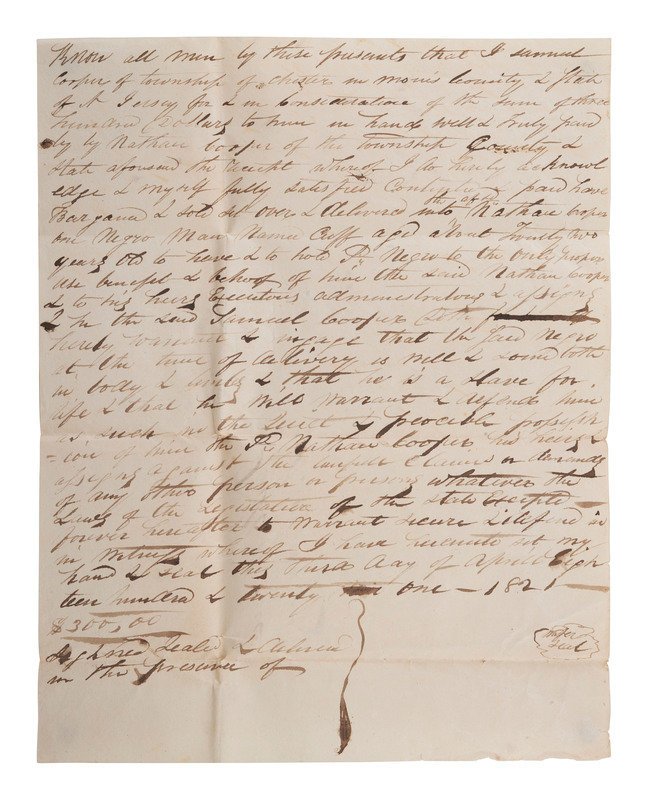 Know all men by these presents that I Samuel
Cooper of township of Chester in morris County & State
of N Jersey for & in Consideration of the Sum of three
hundred Dollars to him in hand well & truly paid
by Nathan Cooper of the township County &
State aforesaid the Receipt whereof I do hereby acknowl
edge & myself fully satisfied Contented & paid have
Bargained & sold set over & delivered unto the Nathan Cooper
one Negro Man Named Cuff aged about Twenty two
years old to have & to hold Negro to the only proper
use benefit & behoof of him the Said Nathan Cooper
& to his heirs Executors administrators & assigns
& the Said Samuel Cooper doth
hereby warrant & ingage that the Said Negro
at the time of delivery is well & Sound both
in body & & that he is a Slave for
life & that he will warrant & defend him
as such in the & peaceable possess
-ion of him the Nathan Cooper his heirs &
assigns against the claims or demands
of any other person or persons whatever the
Laws of the Legislature of the State Excepted
forever hereafter to warrant Secure & defend
in witness whereof I have hereunto set my
hand & seal this third day of April Eigh
teen hundred & twenty one - 1821
$300,00
Sighned Sealed & delivered
in the presence of
Seal